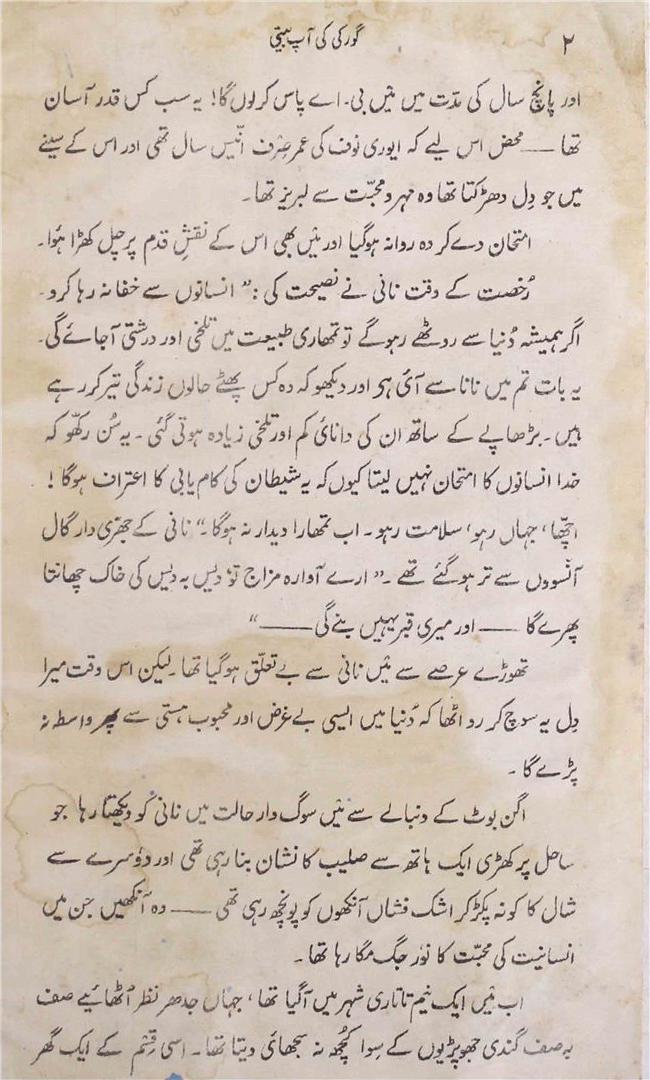 ۲
گورکی کی آپ بیتی
اور پانچ سال کی مدّت میں مَیں بی۔اے پاس کرلوں گا! یہ سب کس قدر آسان
تھا ـــــ محض اس لیے کہ ایوری نوف کی عمر صِرف انّیس سال تھی اور اس کے سینے
میں جو دِل دھڑکتا تھا وہ مہرو محبّت سے لبریز تھا۔
امتحان دے کر وہ روانہ ہوگیا اور مَیں بھی اس کے نقشِ قدم پر چل کھڑا ہُوا۔
رُخصت کے وقت نانی نے نصیحت کی: ”انسانوں سے خفا نہ رہا کرو۔
اگر ہمیشہ دُنیا سے روٹھے رہوگے تو تمھاری طبیعت میں تلخی اور درشتی آجائے گی۔
یہ بات تم میں نانا سے آئی ہی اور دیکھو کہ وہ کس پھٹے حالوں زندگی تیر کر رہے
ہیں۔ بڑھاپے کے ساتھ ان کی دانائ کم اور تلخی زیادہ ہوتی گئی۔ یہ سُن رکھّو کہ
خدا انسانوں کا امتحان نہیں لیتا کیوں کہ یہ شیطان کی کام یابی کا اعتراف ہوگا!
اچھّا، جہاں رہو، سلامت رہو۔ اب تمھارا دیدار نہ ہوگا۔“ نانی کے جھرّی دار گال
آنسووں سے تر ہوگئے تھے۔ ”ارے آوارہ مزاج تو دیس بہ دیس کی خاک چھانتا
پھرے گا ـــــ اور میری قبر یہیں بنے گی ـــــــ“
تھوڑے عرصے سے مَیں نانی سے بے تعلّق ہوگیا تھا۔ لیکن اس وقت میرا
دِل یہ سوچ کر رو اٹھا کہ دُنیا میں ایسی بے غرض اور محبوب ہستی سے پھر واسطہ نہ
پڑے گا۔
اگن بوٹ کے دنبالے سے مَیں سوگ وار حالت میں نانی کو دیکھتا رہا جو
ساحل پر کھڑی ایک ہاتھ سے صلیب کا نشان بنا رہی تھی اور دوٗسرے سے
شال کا کونہ پکڑ کر اشک فشاں آنکھوں کو پونچھ رہی تھی ـــــ وہ آنکھیں جن میں
انسانیت کی محبّت کا نوٗر جگ مگا رہا تھا۔
اب مَیں ایک نیم تاتاری شہر میں آگیا تھا، جہاں جدھر نظر اُٹھائیے صف
بہ صف گندی جھوپڑیوں کے سِوا کُچھ نہ سجھائی دیتا تھا۔ اسی قِسم کے ایک گھر